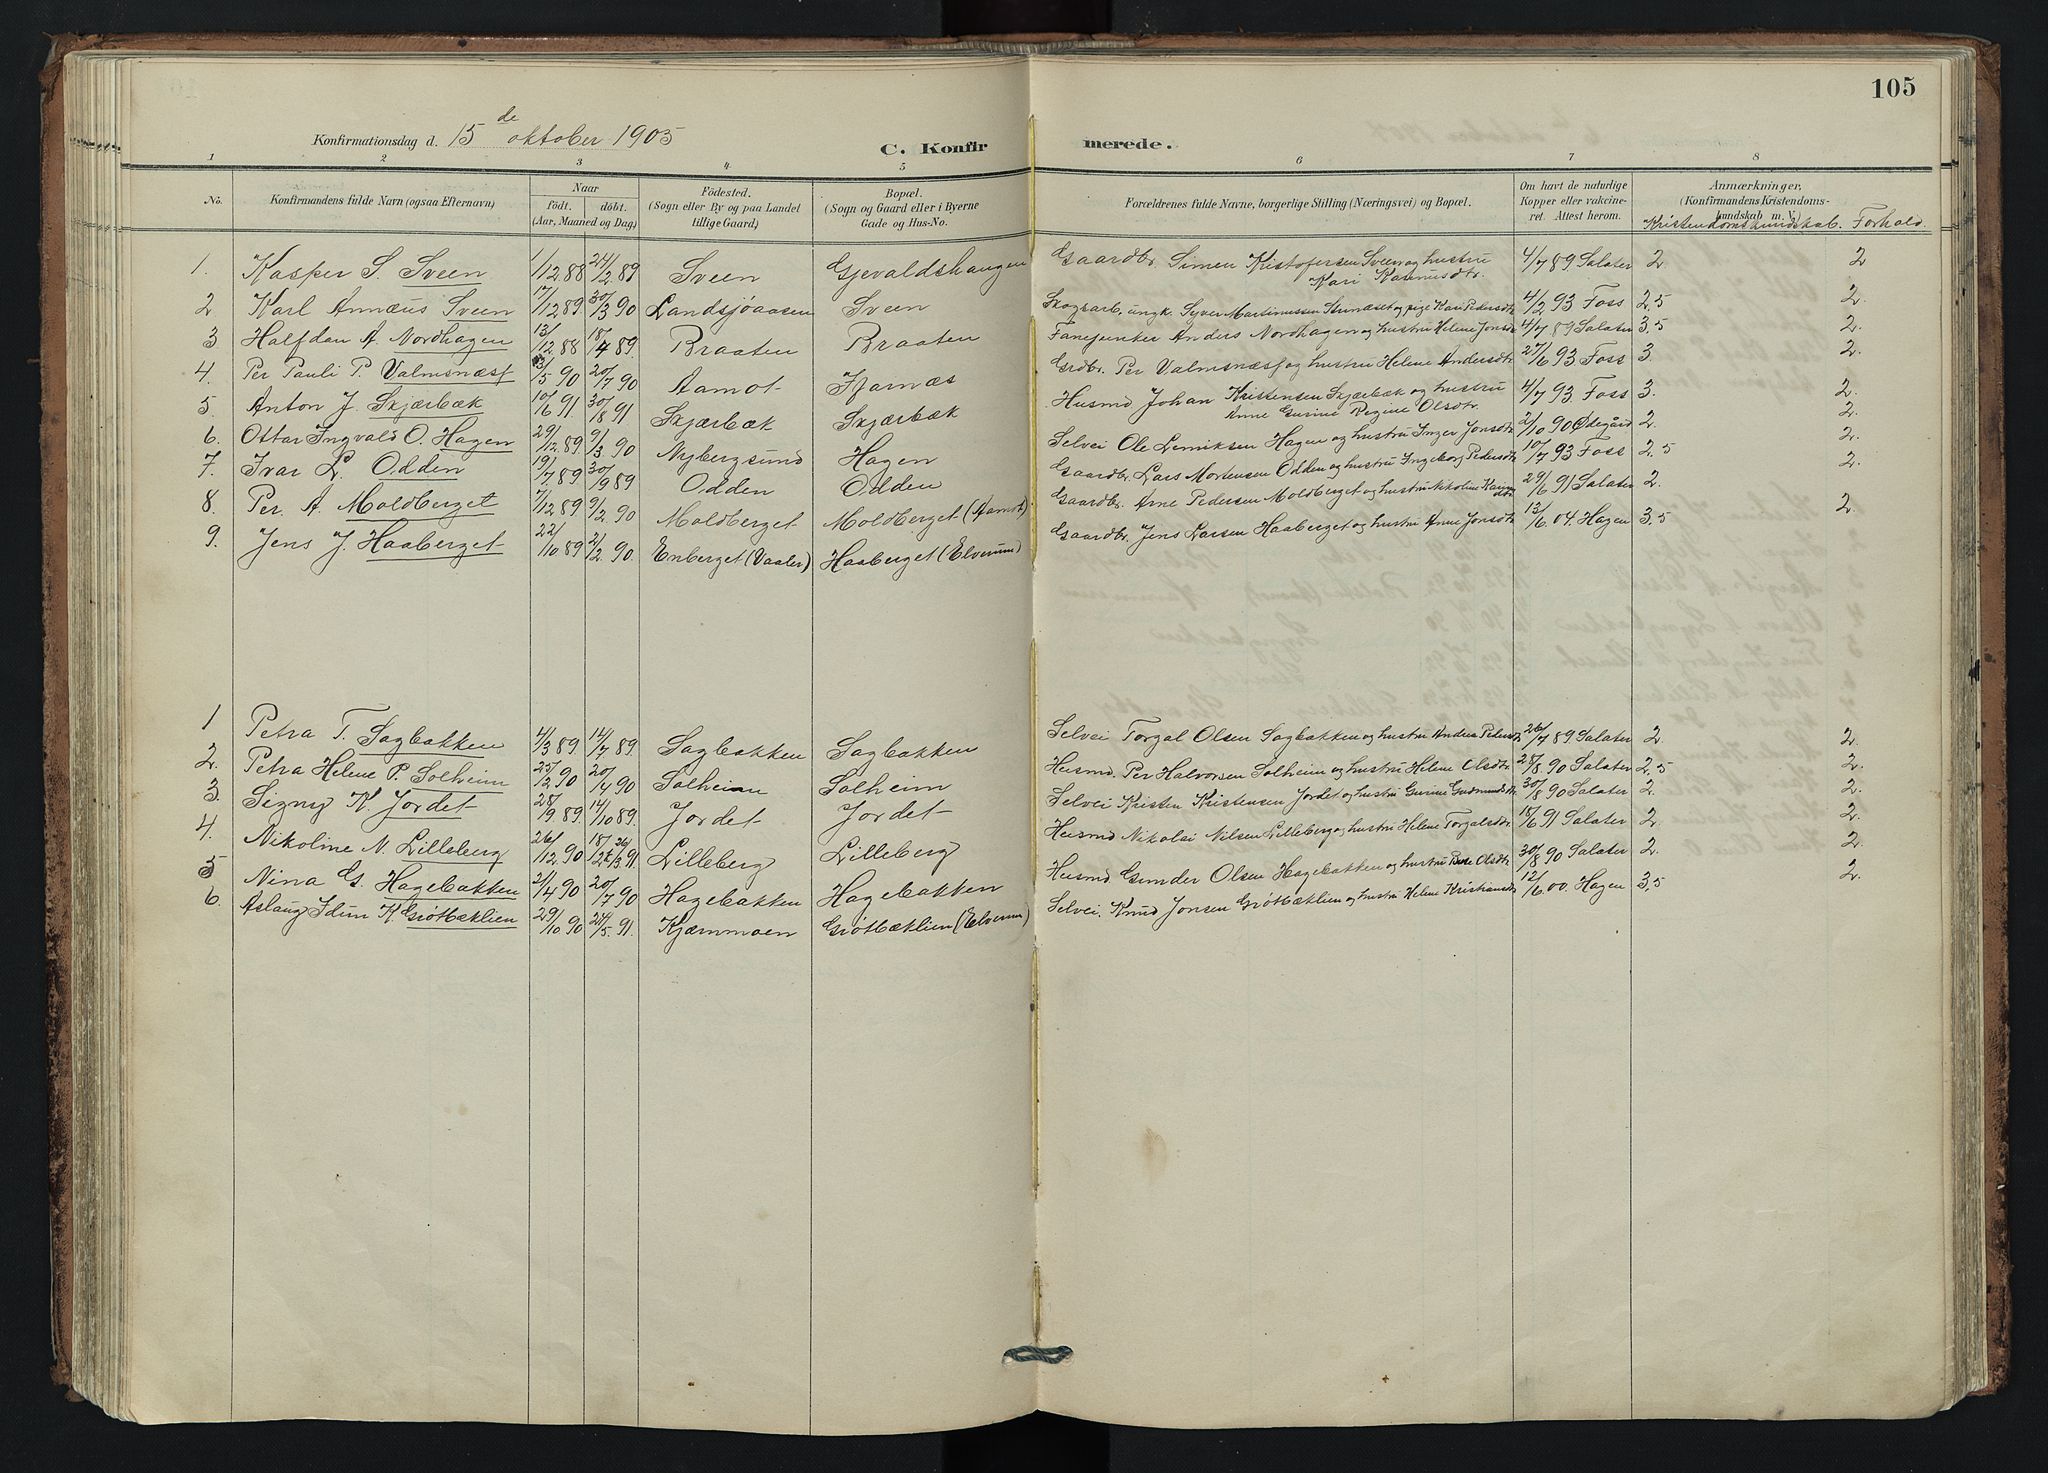 105
Konfirmationsdag d. 15 de oktober 1905
C. Konfir merede.
1 2 3 4 5 6 7 8
No. Konfirmandens fulde Navn (ogsaa Efternavn) Naar født. døbt. (Aar, Maaned og Dag) Födested. (Sogn eller By og paa Landet tillige Gaard) Bopæl. (Sogn og Gaard eller i Byerne Gade og Hus-No. Forældrenes fulde Navne, borgerlige Stilling (Næringsvei) og Bopæl. Om havt de naturlige Kopper eller vakcineret. Attest herom. Anmærkninger, (Konfirmandens Kristendomskundskab m. V.) Kristendomskundskab. Forhold.
1. Kasper S. Sveen 1/12 88 24/2 89 Sveen Gjevaldshaugen Gaardbr. Simen Kristofersen Sveen og hustru Kari Rasmusdtr. 4/7 89 Salater 2. 2
2 Karl Annæus Sveen 17/12 89 30/3 90 Landsjøaasen Sveen Skogsarb, ungk. Syver Martinussen og pige Kari Pedersdtr 4/2 93 Foss 2,5 2.
3 Halfdan A. Nordhagen 13/12 88 18/4 89. Braaten Braaten Fanejunker Anders Nordhagen og hustru Helene Jonsdtr 4/7 89 Salater 3,5 2.
4. Per Pauli P. Valmsnæss /5 90 20/7 90 Aamot Fjarnæs Grdbr. Per Valmsnæss og hustru Helene Andersdtr 27/6 93 Foss 3. 2.
5. Anton J. Skjærbæk 10/6 91 30/8 91 Skjærbæk Skjærbæk Husmd Johan Kristensen Skjærbæk og hustru Anne Gurine Regine Olsdtr. 4/7 93 Foss 3. 2.
6. Ottar Ingvald O. Hagen 29/12 89. 9/3 90 Nybergsund Hagen Selvei Ole Lemiksen Hagen og hustru Inger Jonsdtr 2/10 90 Ødegård 2. 2.
7. Ivar L. Odden 19/7 89 30/9 89 Odden Odden Gaardbr. Lars Mortensen Odden og hustru Ingeborg Pedersdtr 10/7 93 Foss 2,5 2.
8. Per. A. Moldberget 7/12 89 9/2 90 Moldberget Moldberget (Aamot) Gaardbr. Arne Pedersen Moldberget og hustru Nikoline 29/6 91 Salater 2. 2.
9. Jens J. Haaberget 22/10 89 2/2. 90. Enberget (Vaaler) Haaberget (Elverum) Gaardbr. Jens Larsen Haaberget og hustru Anne Jonsdtr 13/6 04. Hagen 3,5 2
1 Petra T. Sagbakken 4/3 89 14/7 89 Sagbakken Sagbakken Selvei Torgal Olsen Sagbakken og hustru Andrea Pedersdtr 26/7 89 Salater 2. 2.
2. Petra Helene P. Solheim 25/2 90 20/4 90 Solheim Solheim Husmd. Per Halvorsen Solheim og hustru Helene Olsdtr. 28/8 90 Salater 2,5 2.
3. Signy K. Jordet 28/9 89. 14/10 89. Jordet Jordet Selvei Kristen Kristensen Jordet og hustru Gurine Gudmundsdtr 30/8 90 Salater 2. 2.
4. Nikoline N. Lilleberg 26/12. 90 Lilleberg Lilleberg Husmd Nikolai Nilsen Lilleberg og hustru Helene Torgalsdtr. 18/6 91 Salater 2. 2.
5 Nina G. Hagebakken 2/4 90 20/7 90 Hagebakken Hagebakken Husmd. Gunder Olsen Hagebakken og hustru Olsdtr 30/8 90 Salater 2. 2.
6. Aslaug Idun K. Grøtbæklien 29/10 90 /5. 91. Kjærnmoen Grøtbæklien (Elverum) Selvei. Knud Jonsen Grøtbæklien og hustru Helene Kristiansdtr 12/6 00. Hagen 3,5 2.